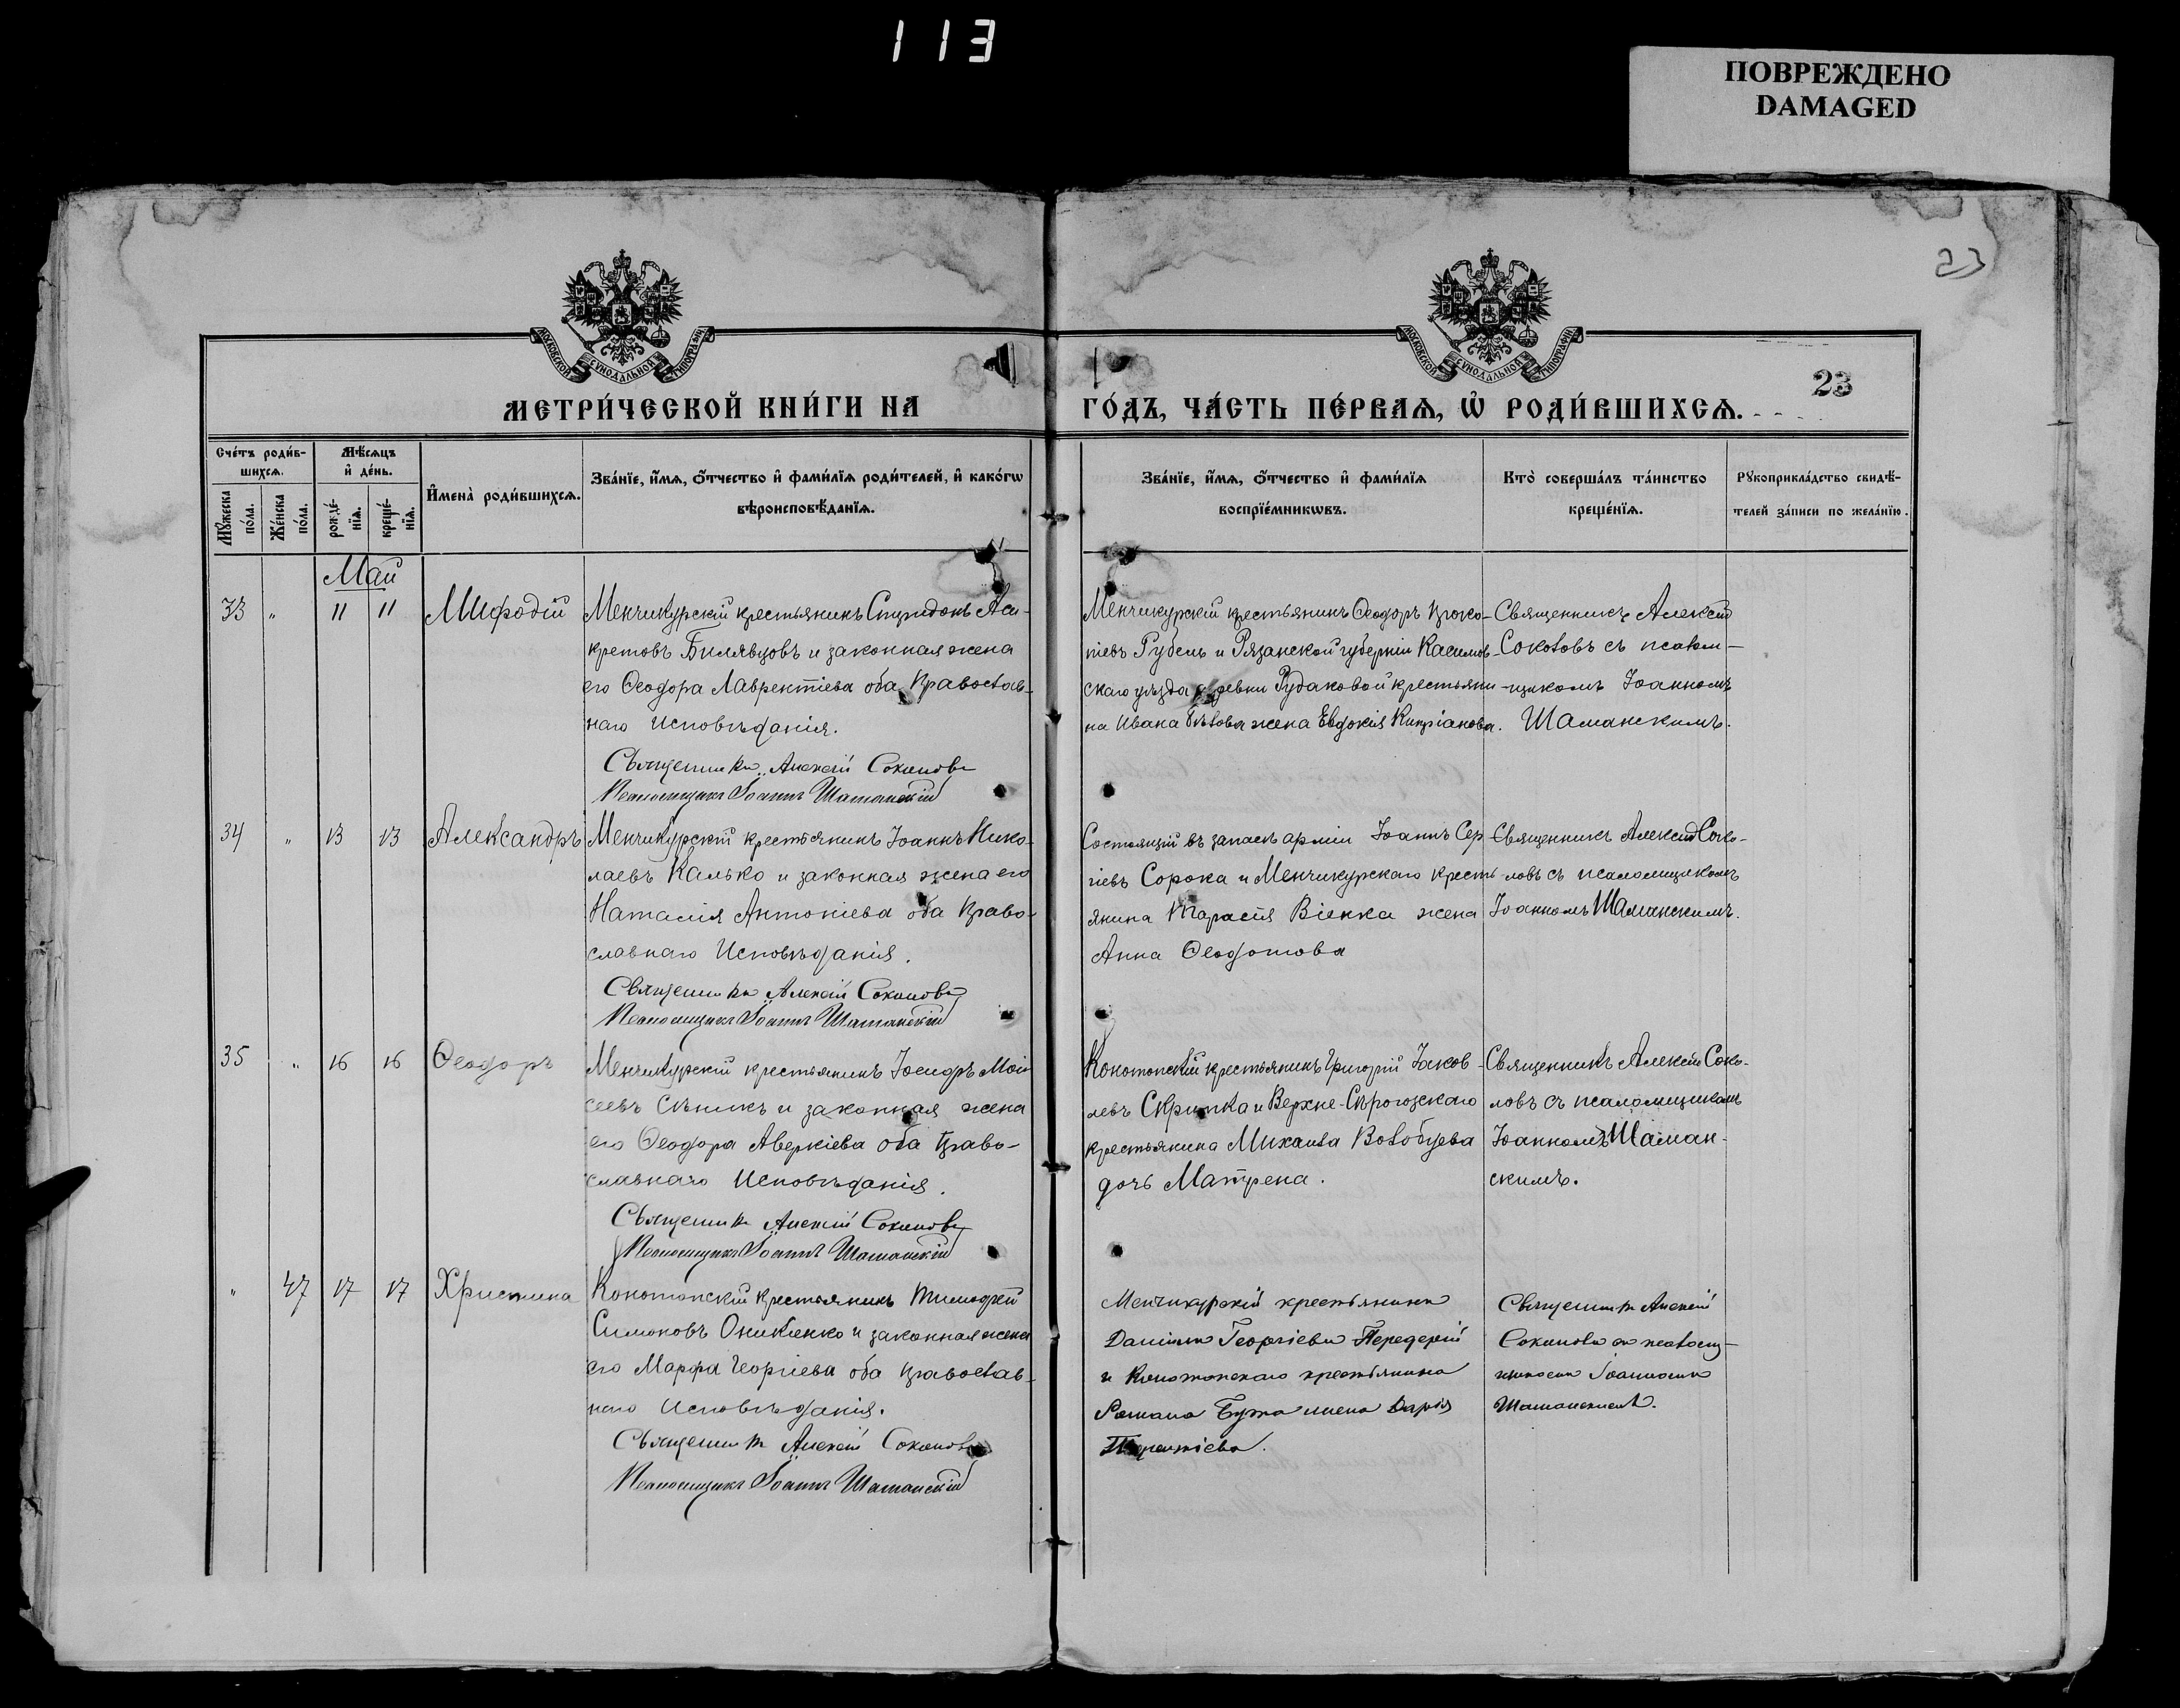 113
ПОВРЕЖДЕНО
DAMAGED
23
МОСКОВСКОЙ СУНОДАЛЬНОЙ ТИПОГРАФІИ
МОСКОВСКОЙ СУНОДАЛЬНОЙ ТИПОГРАФІИ
23
МЕТРИ́ЧЕСКОЙ КНИ́ГИ НА
ГО́ДЪ, ЧА́СТЬ ПЕ́РВАѦ, Ѡ҆ РОДИ́ВШИХСѦ.
Сче́тъ роди́в-
шихсѧ.
Мѣ́сѧцъ
и҆ де́нь.
Мꙋ́жеска
по́ла.
Же́нска
по́ла.
рожде́-
нїѧ.
креще́-
нїѧ.
И҆мена̀ роди́вшихсѧ.
Зва́нїе, и҆́мѧ, ѻ҆́тчество и҆ фами́лїѧ роди́телей, и҆ како́гѡ
вѣроисповѣ́данїѧ.
Зва́нїе, и҆́мѧ, ѻ҆́тчество и҆ фами́лїѧ
воспрїе́мникѡвъ.
Кто̀ соверша́лъ та́инство
креще́нїѧ.
Рꙋкоприкла́дство свидѣ́-
телей за́писи по жела́нїю.
Май
33 " 11 11 Мифодій
Менчикурскій крестьянинъ Спиридонъ Аси-
кретовъ Билявцовъ и законная жена
его Ѳеодора Лаврентіева оба Православ-
наго Исповѣданія.
Священникъ Алексій Соколовъ
Псаломщикъ Іоаннъ Шаманскій
Менчикурскій крестьянинъ Ѳеодоръ Проко-
піевъ Рубель и Рязанской губерніи Касимов-
скаго уѣзда деревни Рудаковой крестьяни-
на Ивана жена Евдокія Кипріанова.
Священникъ Алексій
Соколовъ съ псалом-
щикомъ Іоанномъ
Шаманскимъ.
34 " 13 13 Александръ
Менчикурскій крестьянинъ Іоаннъ Нико-
лаевъ Калько и законная жена его
Наталія Антоніева оба Право-
славнаго Исповѣданія.
Священникъ Алексій Соколовъ
Псаломщикъ Іоаннъ Шаманскій
Состоящій въ запасѣ арміи Іоаннъ Сер
гіевъ Сорока и Менчикурскаго кресть-
янина Тарасія Віенка жена
Анна Ѳеодотова
Священникъ Алексій Соко-
ловъ съ псаломщикомъ
Іоанномъ Шаманскимъ.
35 " 16 16 Ѳеодоръ
Менчикурскій крестьянинъ Исидоръ Мои-
сеевъ Сѣникъ и законная жена
его Ѳеодора Аверкіева оба Право-
славнаго Исповѣданія.
Священникъ Алексій Соколовъ
Псаломщикъ Іоаннъ Шаманскій
Конотопскій крестьянинъ Григорій Іаков-
левъ Скрипка и Верхне-Сѣрогозскаго
крестьянина Михаила
дочь Матрена.
Священникъ Алексій Соко-
ловъ съ псаломщикомъ
Іоанномъ Шаман-
скимъ.
" 47 17 17 Христина
Конотопскій крестьянинъ Тимофей
Симоновъ Оникіенко и законная жена
его Марфа Георгіева оба Православ-
наго Исповѣданія.
Священникъ Алексій Соколовъ
Псаломщикъ Іоаннъ Шаманскій
Менчикурскій крестьянинъ
Даніилъ Георгіевъ Передерій
и Конотопскаго крестьянина
Романа жена Дарія
Терентіева.
Священникъ Алексій
Соколовъ съ псалом-
щикомъ Іоанномъ
Шаманскимъ.